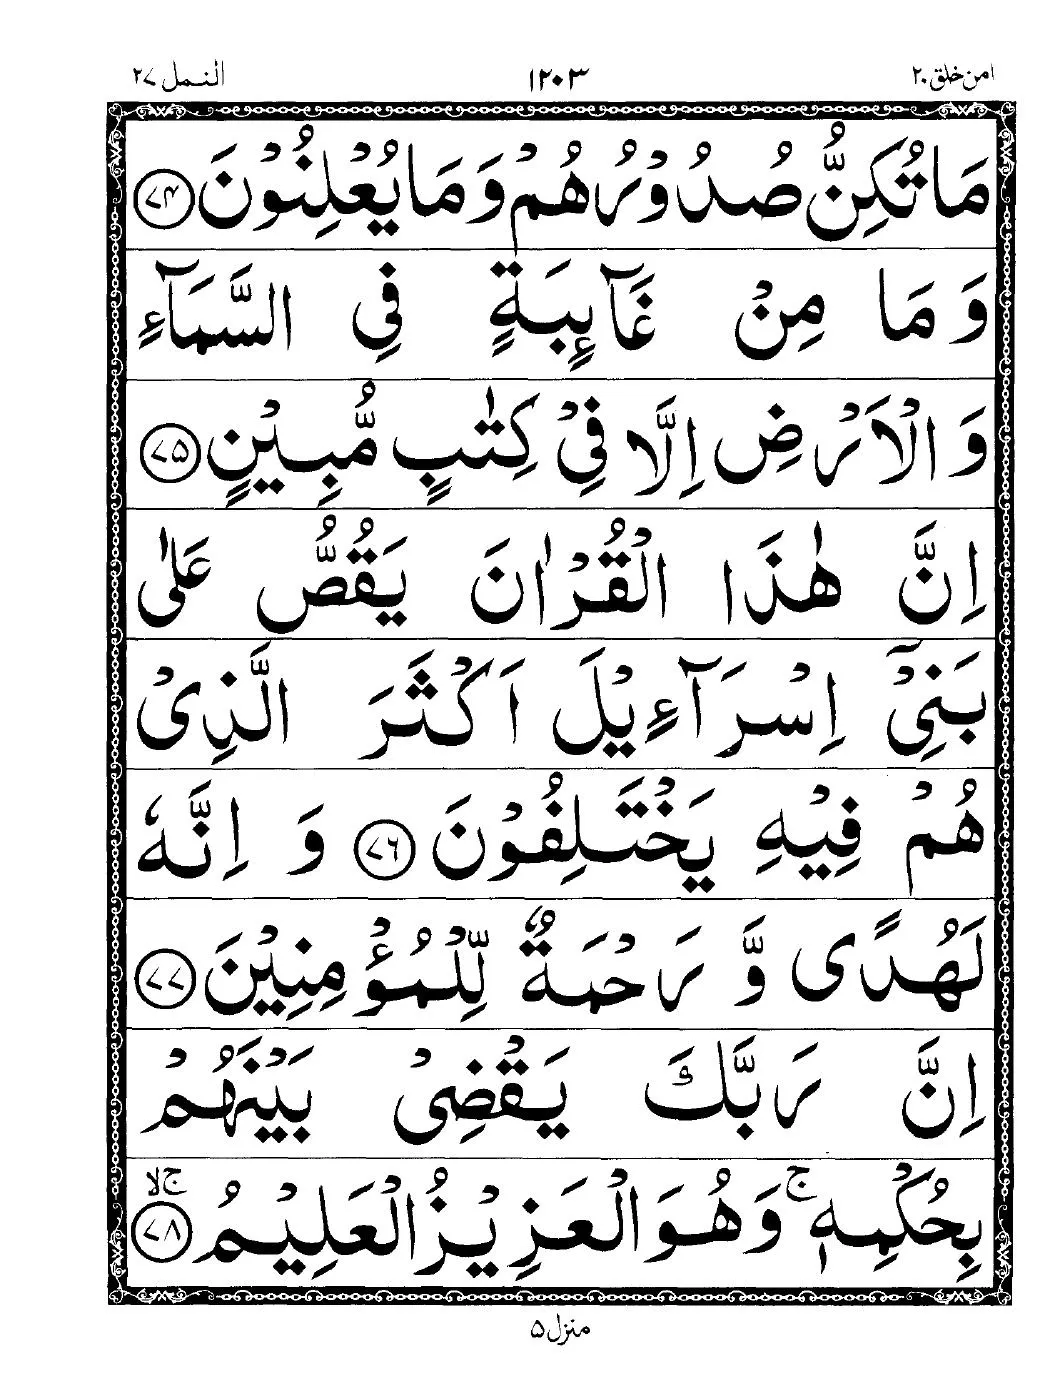 امن خلق ٢٠ ١٢٠٣ النمل ٢٧
مَا تُكِنُّ صُدُوْرُهُمْ وَمَا يُعْلِنُوْنَ ﴿٧٤﴾
وَمَا مِنْ غَآىِٕبَةٍ فِى السَّمَآءِ
وَالْاَرْضِ اِلَّا فِىْ كِتٰبٍ مُّبِيْنٍ ﴿٧٥﴾
اِنَّ هٰذَا الْقُرْاٰنَ يَقُصُّ عَلٰى
بَنِىْٓ اِسْرَآءِيْلَ اَكْثَرَ الَّذِىْ
هُمْ فِيْهِ يَخْتَلِفُوْنَ ﴿٧٦﴾ وَاِنَّهٗ
لَهُدًى وَّرَحْمَةٌ لِّلْمُؤْمِنِيْنَ ﴿٧٧﴾
اِنَّ رَبَّكَ يَقْضِىْ بَيْنَهُمْ
بِحُكْمِهٖ ۚ وَهُوَ الْعَزِيْزُ الْعَلِيْمُ ۙۚ ﴿٧٨﴾
منزل ٥